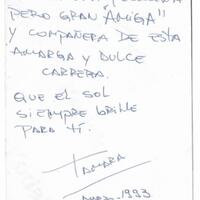 PERO GRAN "AMIGA"
Y COMPAÑERA DE ESTA
AMARGA Y DULCE
CARRERA.
QUE EL SOL
SIEMPRE BRILLE
PARA TÍ.
TAMARA
1993